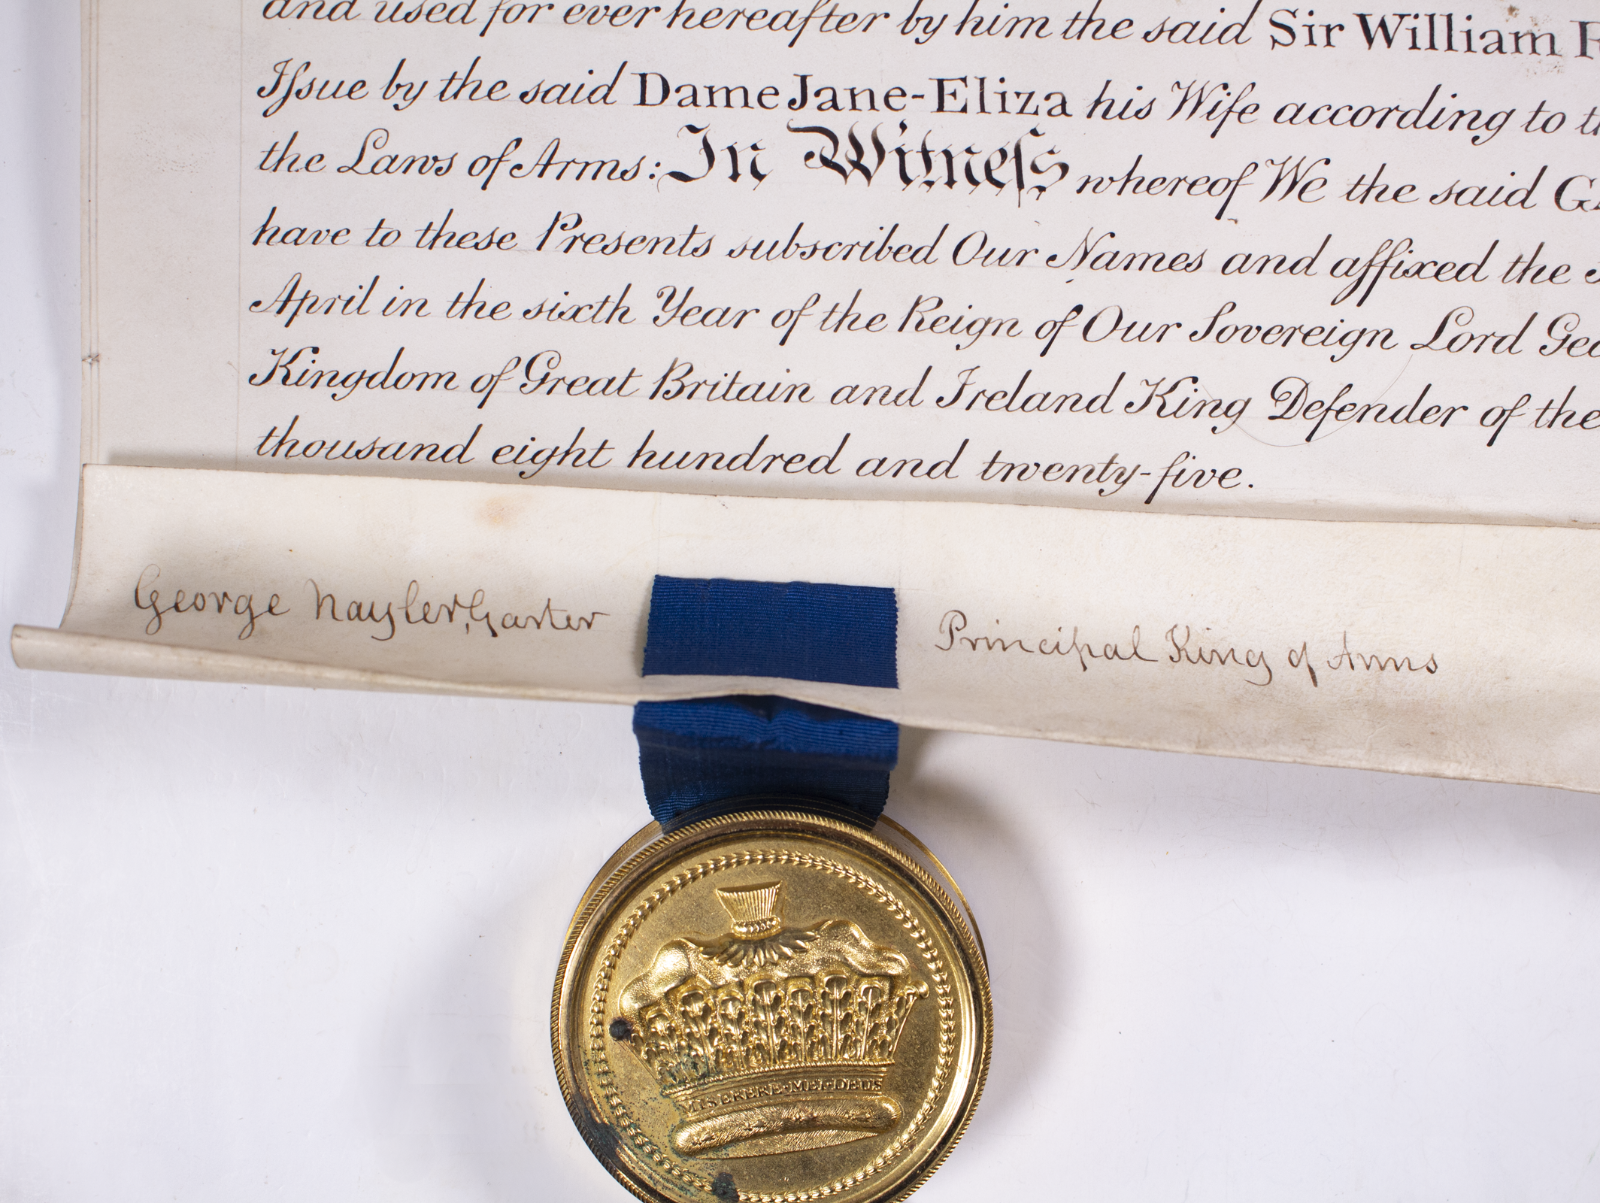 and used for ever hereafter by him the said Sir William
Issue by the said Dame Jane-Eliza his Wife according to
the Laws of Arms: In Witness whereof We the said
have to these Presents subscribed Our Names and affixed the
April in the sixth Year of the Reign of Our Sovereign Lord Geo
Kingdom of Great Britain and Ireland King Defender of the
thousand eight hundred and twenty-five.
George Nayler, Garter Principal King of Arms
MISERERE·MEI·DEUS